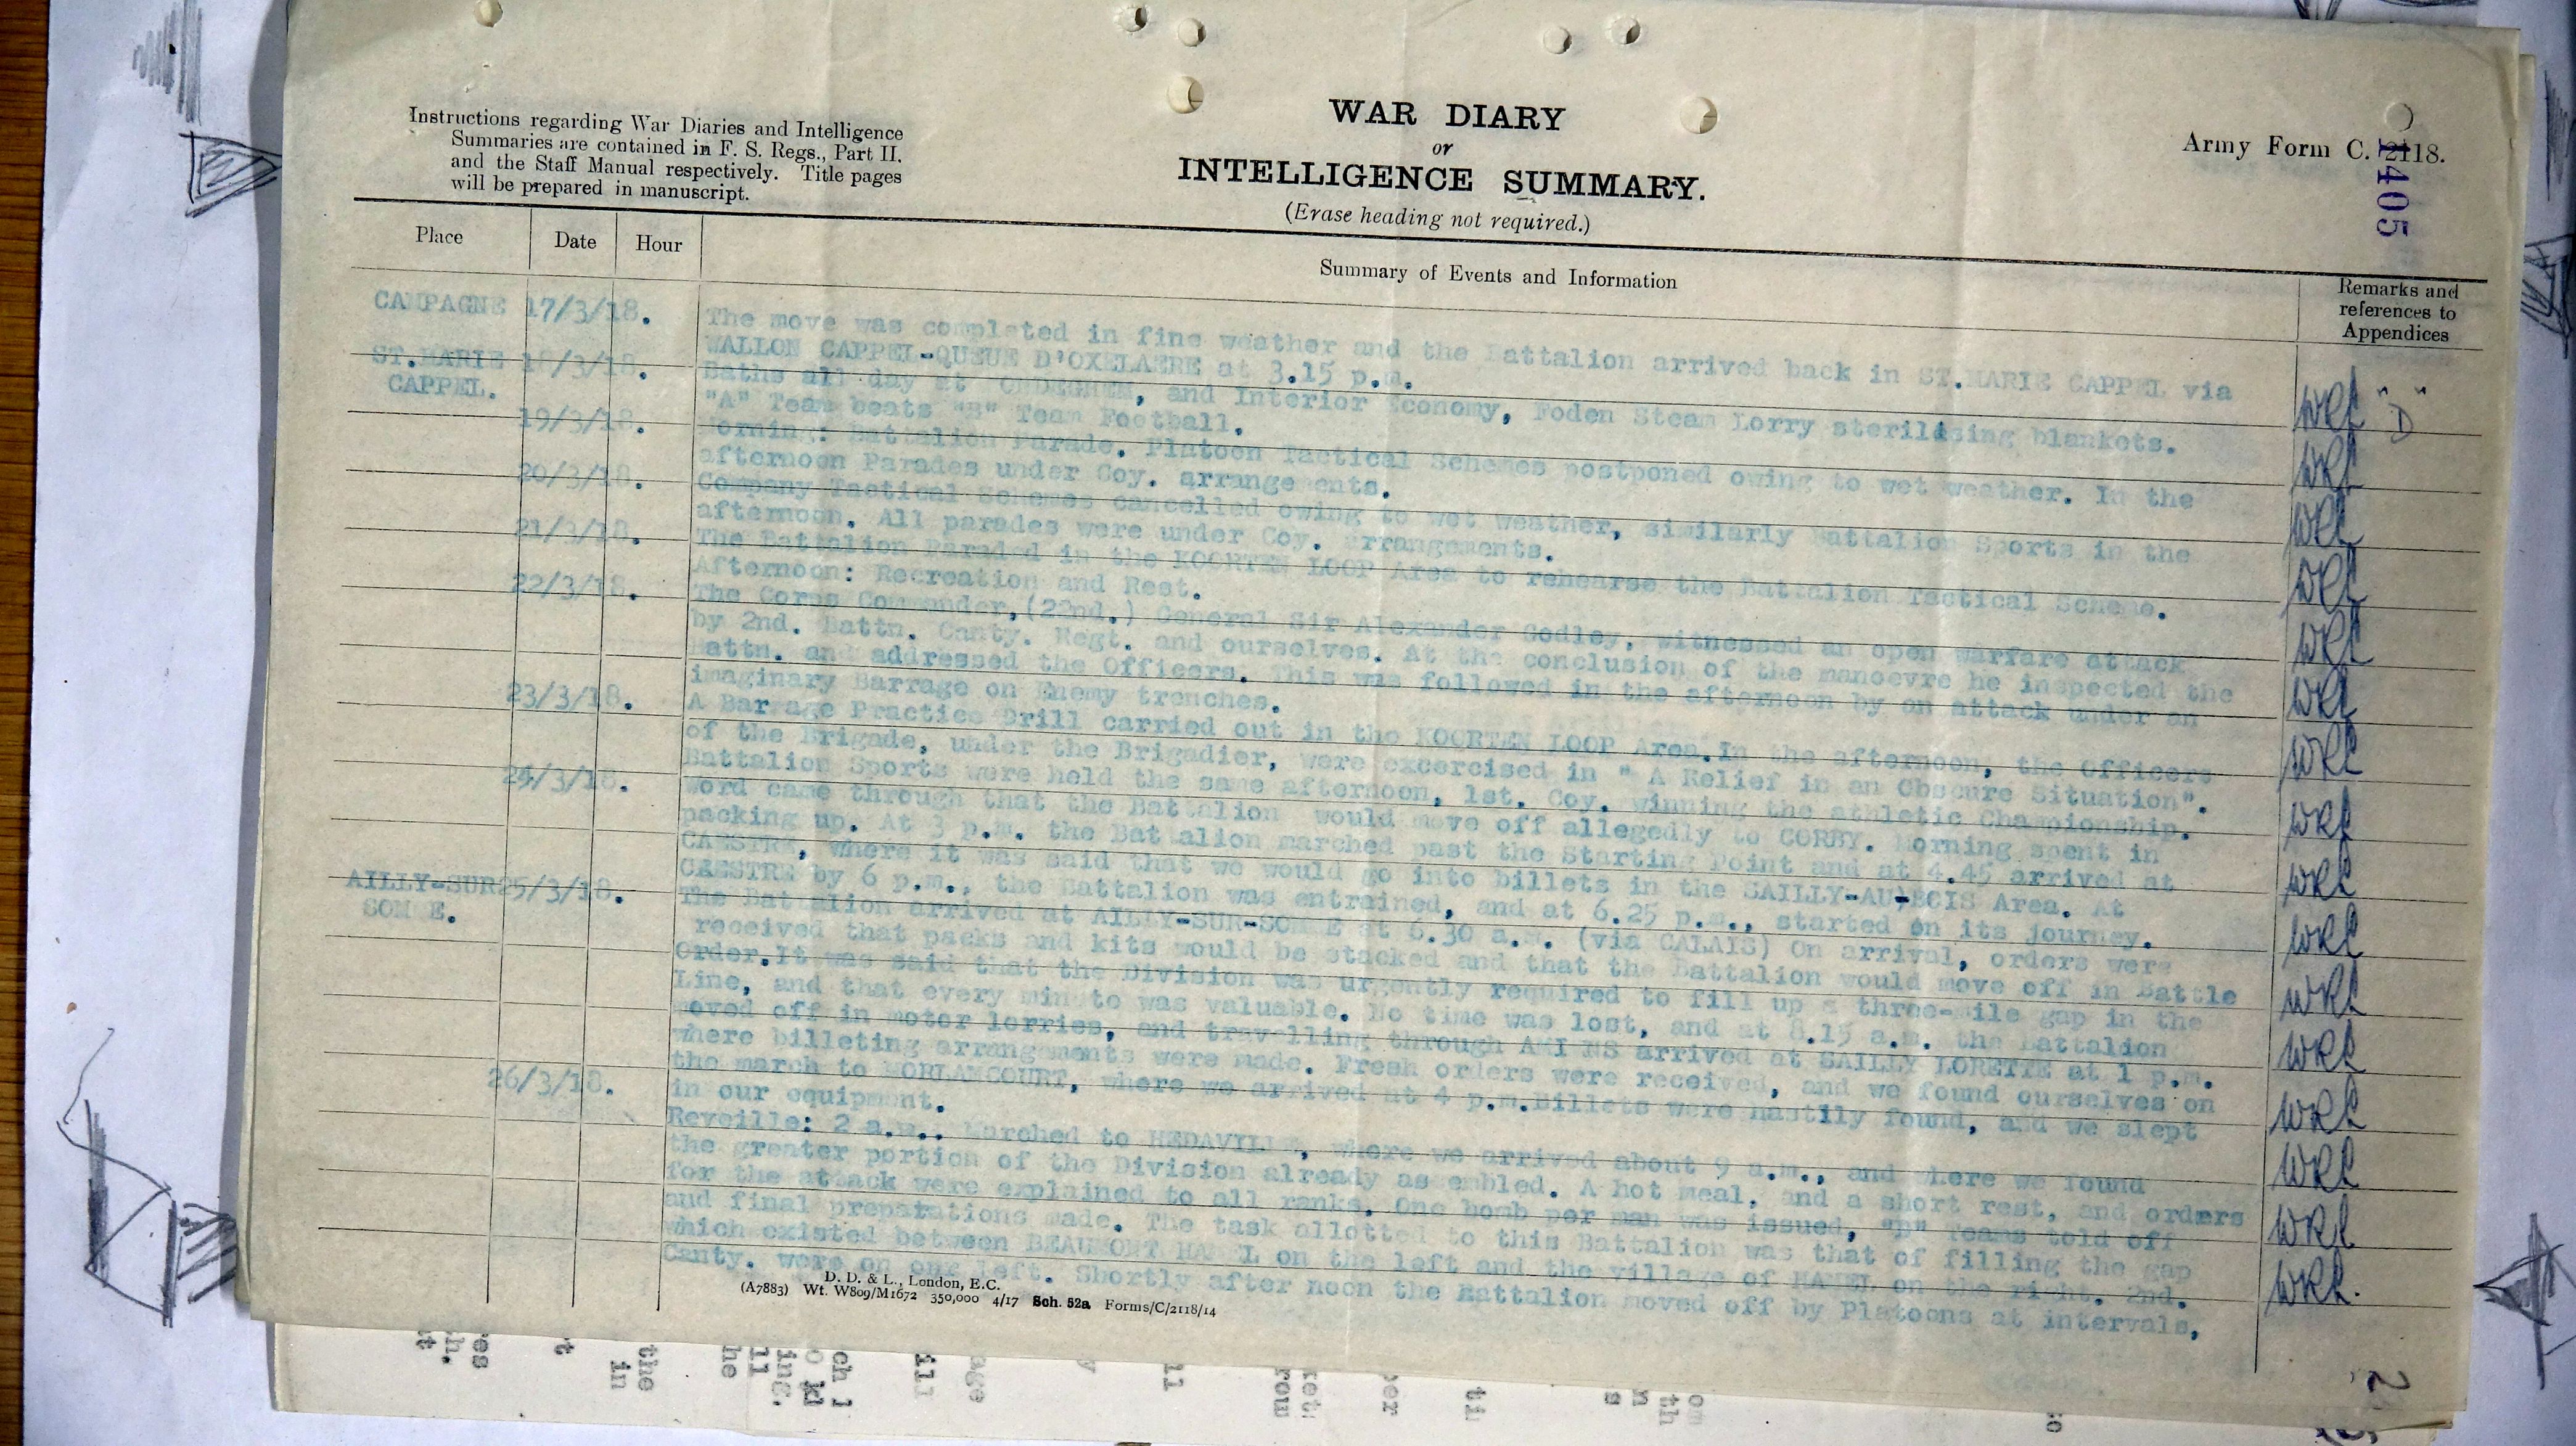 Instructions regarding War Diaries and Intelligence
Summaries are contained in F. S. Regs., Part II.
and the Staff Manual respectively. Title pages
will be prepared in manuscript.
WAR DIARY
or
INTELLIGENCE SUMMARY.
(Erase heading not required.)
Army Form C. 2118.
1405
Place Date Hour
Summary of Events and Information
Remarks and
references to
Appendices
CAMPAGNE 17/3/18. The move was completed in fine weather and the Battalion arrived back in ST.MARIE CAPPEL via
WALLON CAPPEL-QUEUE D'OXELAERE at 3.15 p.m. WRL "D"
ST.MARIE 18/3/18. Baths all day at ONDEGHEM, and Interior Economy, Foden Steam Lorry sterilising blankets.
CAPPEL. "A" Team beats "B" Team Football. WRL
19/3/18. Morning: Battalion Parade. Platoon Tactical Schemes postponed owing to wet weather. In the
afternoon Parades under Coy. arrangements. WRL
20/3/18. Company Tactical Schemes cancelled owing to wet weather, similarly Battalion Sports in the
afternoon. All parades were under Coy. arrangements. WRL
21/3/18. The Battalion Paraded in the KOORTEN LOOP Area to rehearse the Battalion Tactical Scheme.
Afternoon: Recreation and Rest. WRL
22/3/18. The Corps Commander,(22nd.) General Sir Alexander Godley, witnessed an open warfare attack
by 2nd. Battn. Canty. Regt. and ourselves. At the conclusion of the manoevre he inspected the
Battn. and addressed the Officers. This was followed in the afternoon by an attack under an
imaginary Barrage on Enemy trenches. WRL
23/3/18. A Barrage Practice Drill carried out in the KOORTEN LOOP Area.In the afternoon, the Officers
of the Brigade, under the Brigadier, were excercised in " A Relief in an Obscure Situation".
Battalion Sports were held the same afternoon, 1st. Coy. winning the athletic Championship. WRL
24/3/18. Word came through that the Battalion would move off allegedly to CORBY. Morning spent in
packing up. At 3 p.m. the Battalion marched past the Starting Point and at 4.45 arrived at
CAESTRE, where it was said that we would go into billets in the SAILLY-AU-BOIS Area. At
CAESTRE by 6 p.m., the Battalion was entrained, and at 6.25 p.m., started on its journey. WRL
AILLY-SUR 25/3/18. The Battalion arrived at AILLY-SUR-SOMME at 6.30 a.m. (via CALAIS) On arrival, orders were
SOMME. received that packs and kits would be stacked and that the Battalion would move off in Battle
Order.It was said that the Division was urgently required to fill up a three-mile gap in the
Line, and that every minute was valuable. No time was lost, and at 8.15 a.m. the Battalion
moved off in motor lorries, and travelling through AMIENS arrived at SAILLY LORETTE at 1 p.m.
where billeting arrangements were made. Fresh orders were received, and we found ourselves on
the march to MORLANCOURT, where we arrived at 4 p.m.Billets were hastily found, and we slept
in our equipment. WRL
26/3/18. Reveille: 2 a.m., Marched to HEDAVILLE, where we arrived about 9 a.m., and where we found
the greater portion of the Division already assembled. A hot meal, and a short rest, and orders
for the attack were explained to all ranks. One bomb per man was issued, "B" Teams told off
and final preparations made. The task allotted to this Battalion was that of filling the gap
which existed between BEAUMONT HAMEL on the left and the village of HAMEL on the right. 2nd.
Canty. were on our left. Shortly after noon the Battalion moved off by Platoons at intervals,
WRL.
D. D. & L., London, E.C.
(A7883) Wt. W809/M1672 350,000 4/17 Sch. 52a Forms/C/2118/14